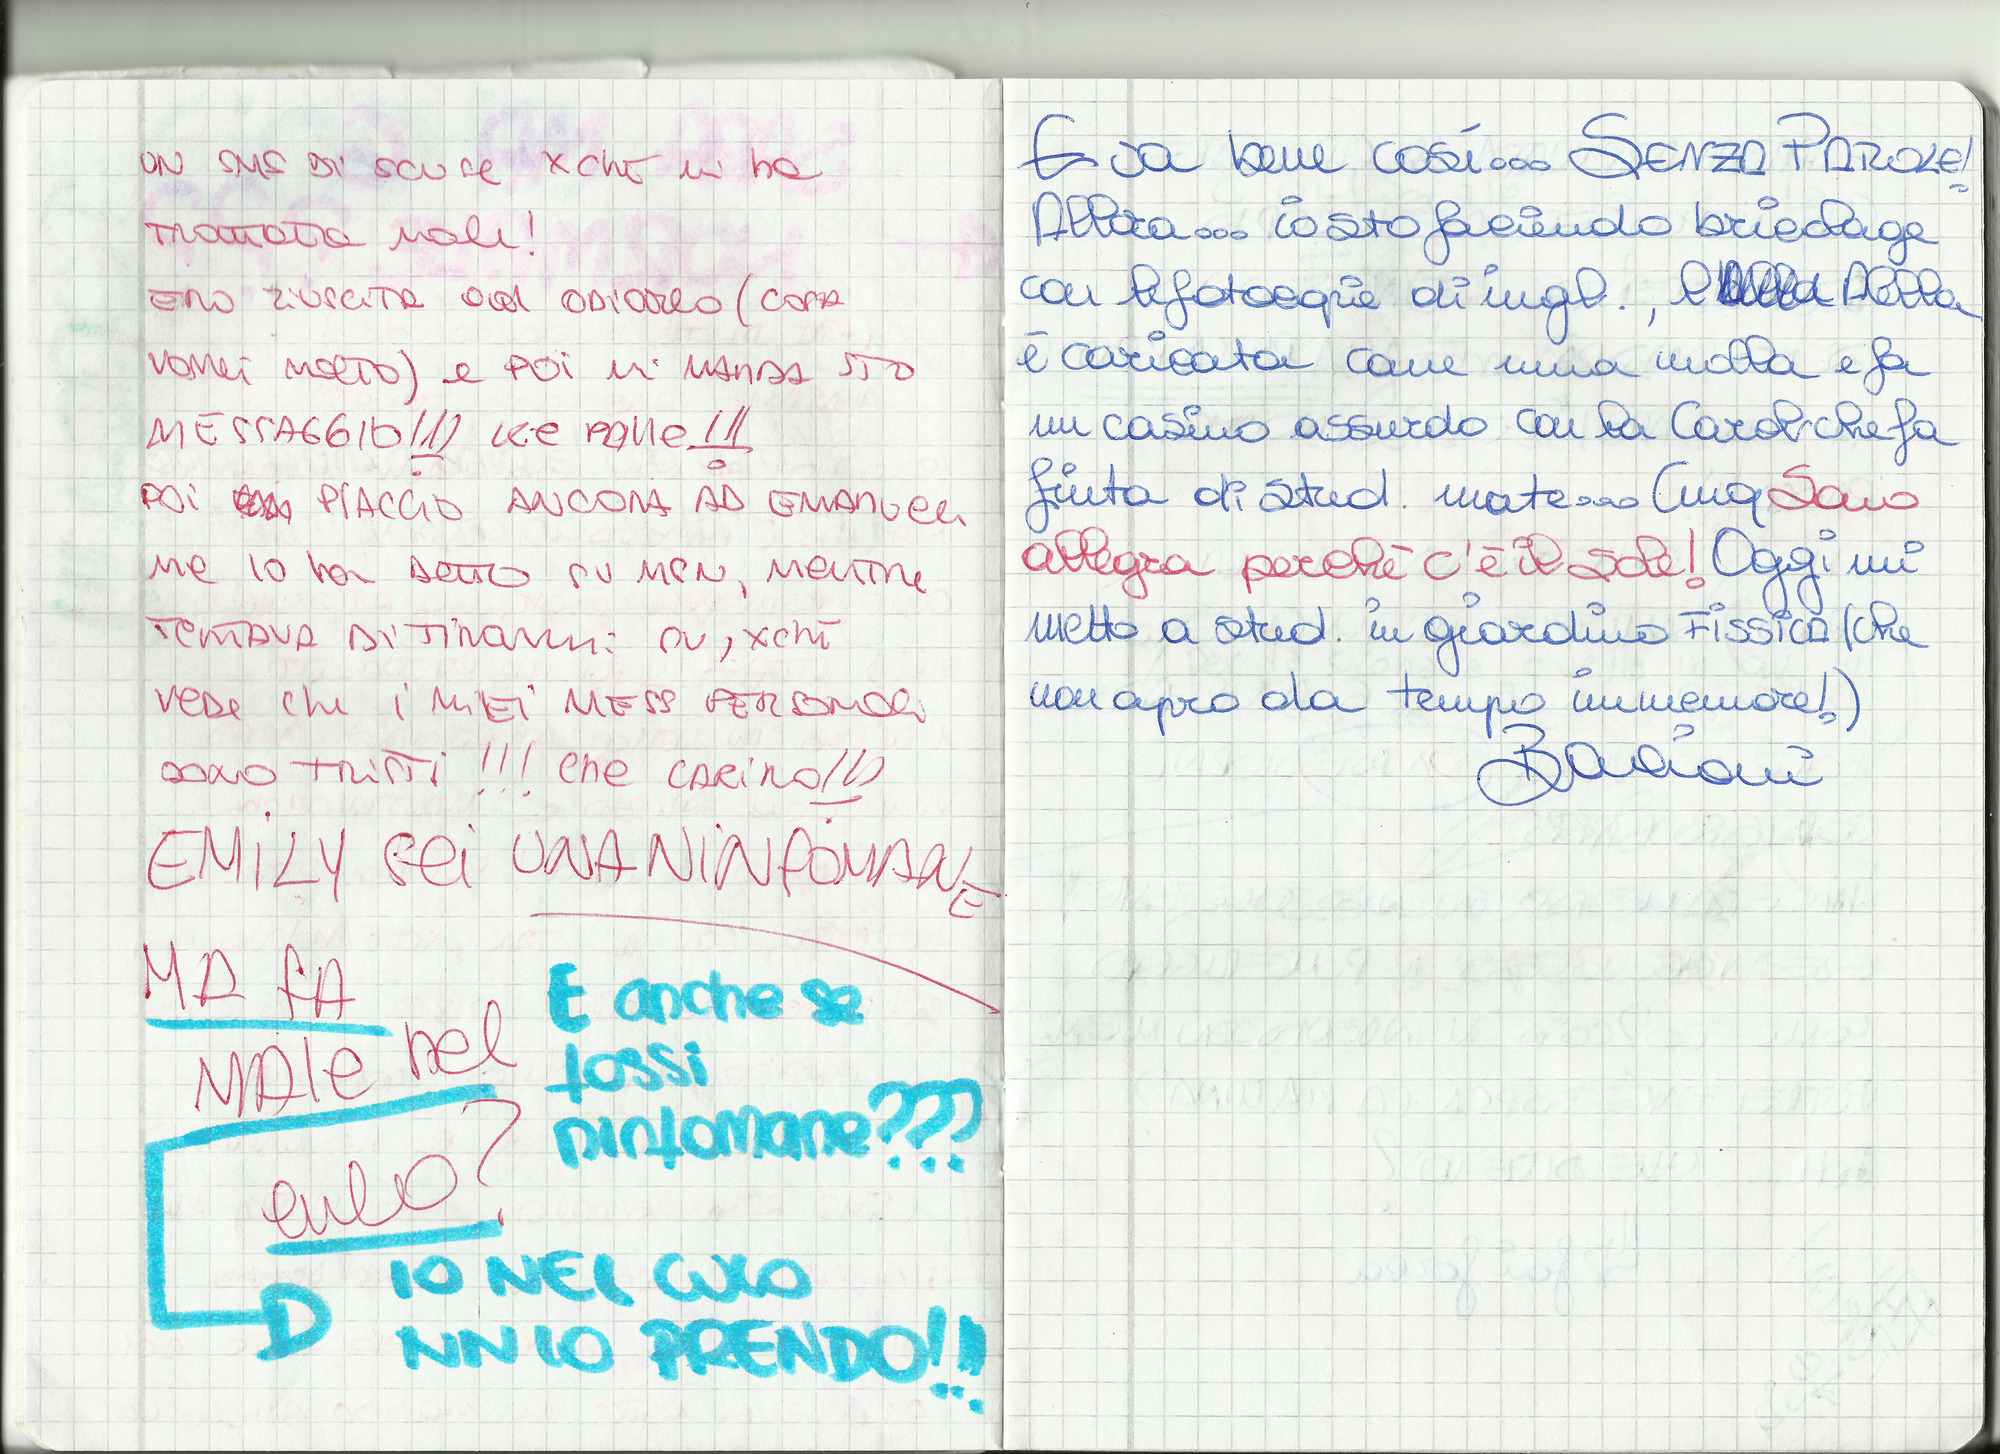 UN SMS DI SCUSE xchè mi ha
trattata male!
ERO RIUSCITA ad odiarlo (cosa
vorrei molto) e poi mi manda sto
MESSAGGIO!!!) ke palle!!!
POI PIACCIO ANCORA AD EMANUELE
me lo ha detto su MSN, mentre
tentava di tirarmi su, xchè
vede che i miei mess personali
sono tristi!!! che carino!!!)
EMILY sei UNA NINFOMANE
MA FA
MALE nel
culo?
E anche se
fossi
ninfomane???...
IO NEL CULO
NN LO PRENDO!!!
E va bene così... SENZA PAROLE!
Allora... io sto facendo bricolage
con le fotocopie di ingl., l' Alella
è caricata come una molla e fa
un casino assurdo con la Carol che fa
finta di stud. mate... Cmq Sono
allegra perchè c'è il sole! Oggi mi
metto a stud. in giardino FISSICA (che
non apro da tempo immemore!)